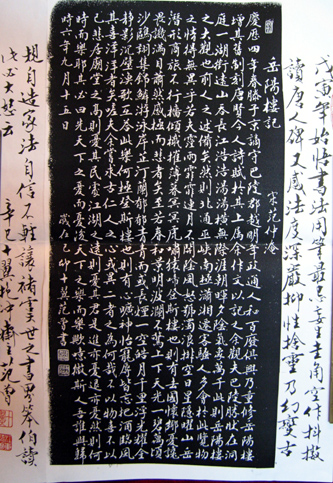 戊寅年始悟書法用筆最忌圭角空作抖擻
讀唐人碑又感法度深嚴抑性捨靈乃幻墜古
岳陽樓記 宋范仲淹
慶曆四年春滕子京謫守巴陵郡越明年政通人和百廢俱興乃重修岳陽樓
增其舊制刻唐賢今人詩賦於其上屬余作文以記之余觀夫巴陵勝狀在洞
庭一湖銜遠山吞長江浩浩湯湯橫無際涯朝暉夕陰氣象萬千此則岳陽樓
之大觀也前人之述備矣然則北通巫峽南極瀟湘遷客騷人多會於此覽物
之情得無異乎若夫霪雨霏霏連月不開陰風怒號濁浪排空日星隱曜山岳
潛形商旅不行檣傾楫摧薄暮冥冥虎嘯猿啼登斯樓也則有去國懷鄉憂讒
畏譏滿目蕭然感極而悲者矣至若春和景明波瀾不驚上下天光一碧萬頃
沙鷗翔集錦鱗游泳岸芷汀蘭郁郁青青而或長煙一空皓月千里浮光耀金
靜影沉璧漁歌互答此樂何極登斯樓也則有心曠神怡寵辱皆忘把酒臨風
其喜洋洋者矣嗟夫余嘗求古仁人之心或異二者之為何哉不以物喜不以
己悲居廟堂之高則憂其民處江湖之遠則憂其君是進亦憂退亦憂然則何
時而樂耶其必曰先天下之憂而憂後天下之樂而樂歟噫微斯人吾誰與歸
時六年九月十五日 歲在己卯十翼范曾書
規自造家法自信不輕讓雲世之書界笨伯讀
此必大悲云 辛巳十翼於沖齋主范曾